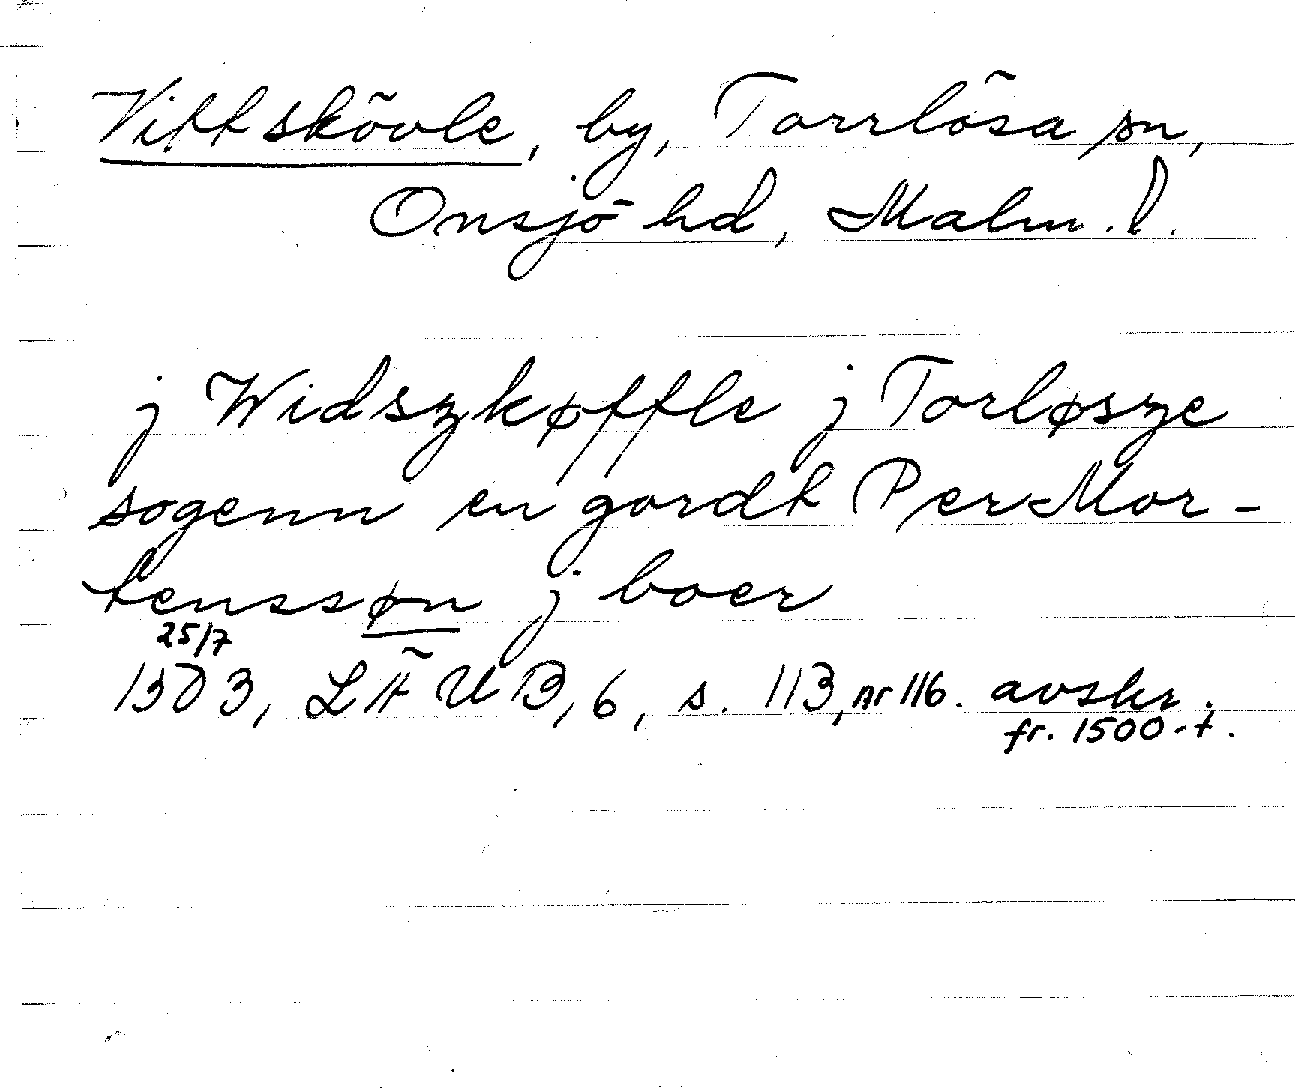 Vittskövle, by, Torrlösa sn,
Onsjö hd, Malm. l.
j Widszkøffle j Torløsze
sogenn en gordt Per Mor-
tenssøn j boer
25/7
1503, LÄUB, 6, s. 113, nr 116. avskr.
fr. 1500-t.